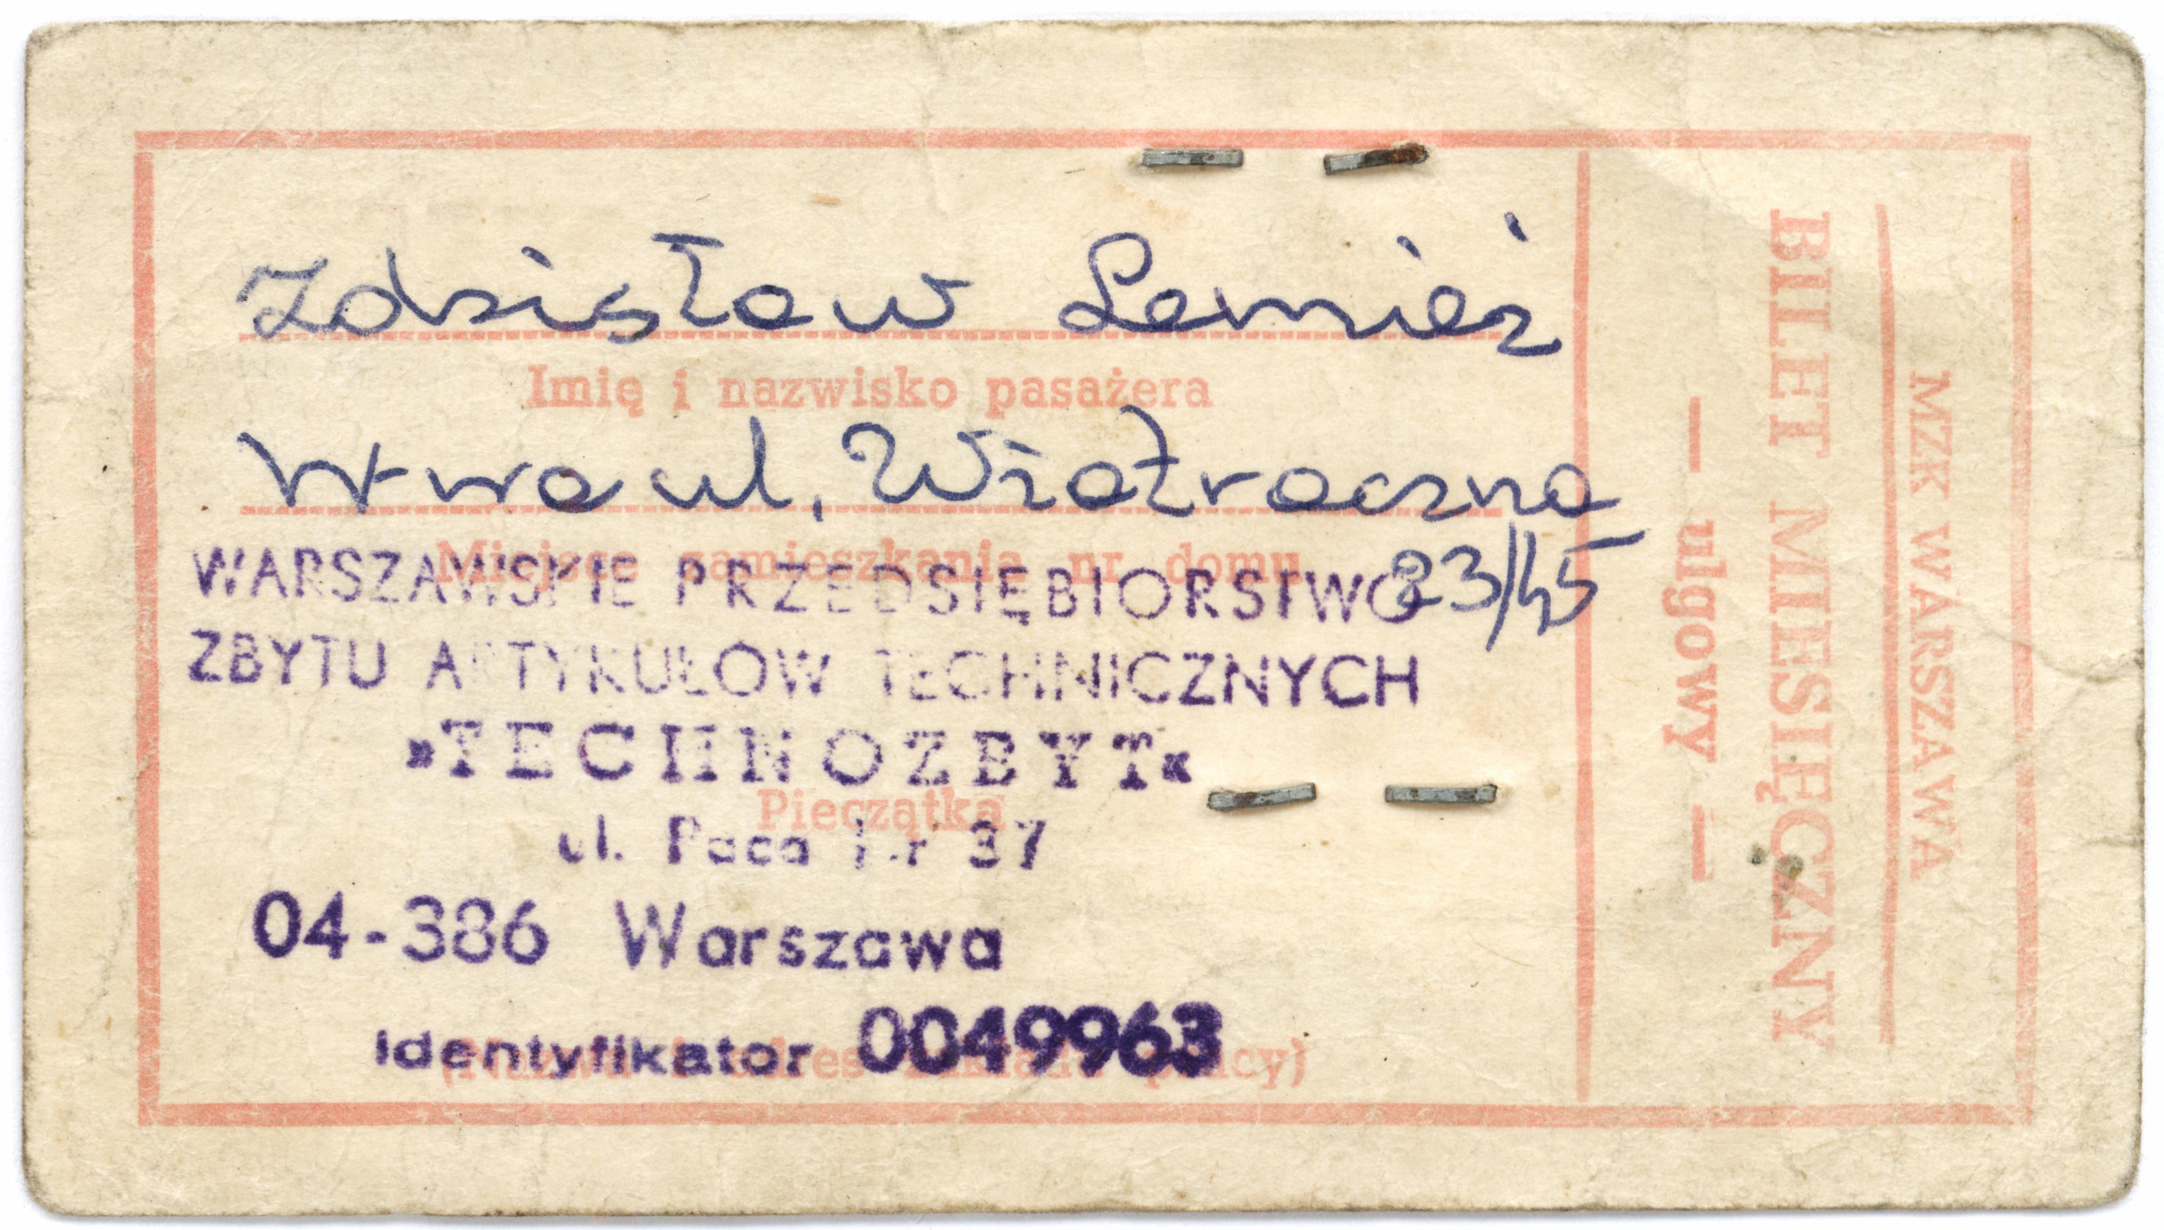 Zdzisław Lemież
Imię i nazwisko pasażera
W-wa ul. Wiatraczna
23/45
Miejsce zamieszkania nr domu
WARSZAWSKIE PRZEDSIĘBIORSTWO
ZBYTU ARTYKUŁÓW TECHNICZNYCH
»TECHNOZBYT«
Pieczątka
ul. Paca Nr 37
04-386 Warszawa
Identyfikator 0049963
(Nazwa i adres zakładu pracy)
MZK WARSZAWA
BILET MIESIĘCZNY
— ulgowy —